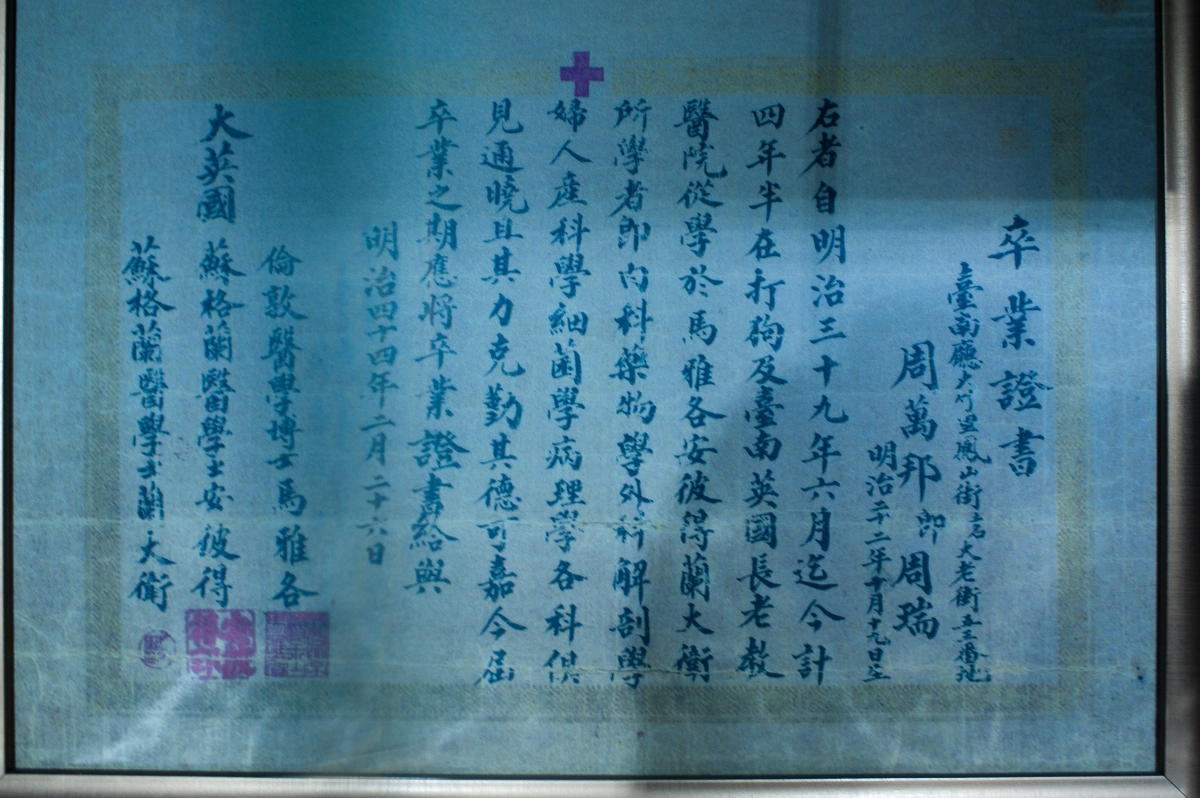 卒業證書
臺南廳大竹里鳳山街土名大老衙五三番地
周萬邦 即 周瑞
明治二十二年十月十九日生
右者自明治三十九年六月迄今計
四年半在打狗及臺南英國長老教
醫院從學於馬雅各安彼得蘭大衛
所學者即內科藥物學外科解剖學
婦人產科學細菌學病理學各科俱
見通曉且其力克勤其德可嘉今屆
卒業之期應將卒業證書給與
明治四十四年二月二十六日
倫敦醫學博士馬雅各
大英國 蘇格蘭醫學士安彼得
蘇格蘭醫學士蘭大衛